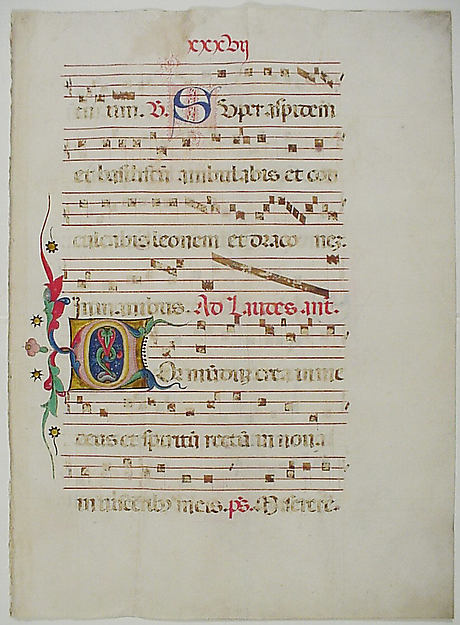 xxxvij
tu um. V. Super aspidem
et basiliscū ambulabis et con
culcabis leonem et draco nez.
In manibus. Ad Laudes. ant.
Cor mūdū crea in me
deus et spiritū rectū in nova
in visceribus meis. ps. Miserere.